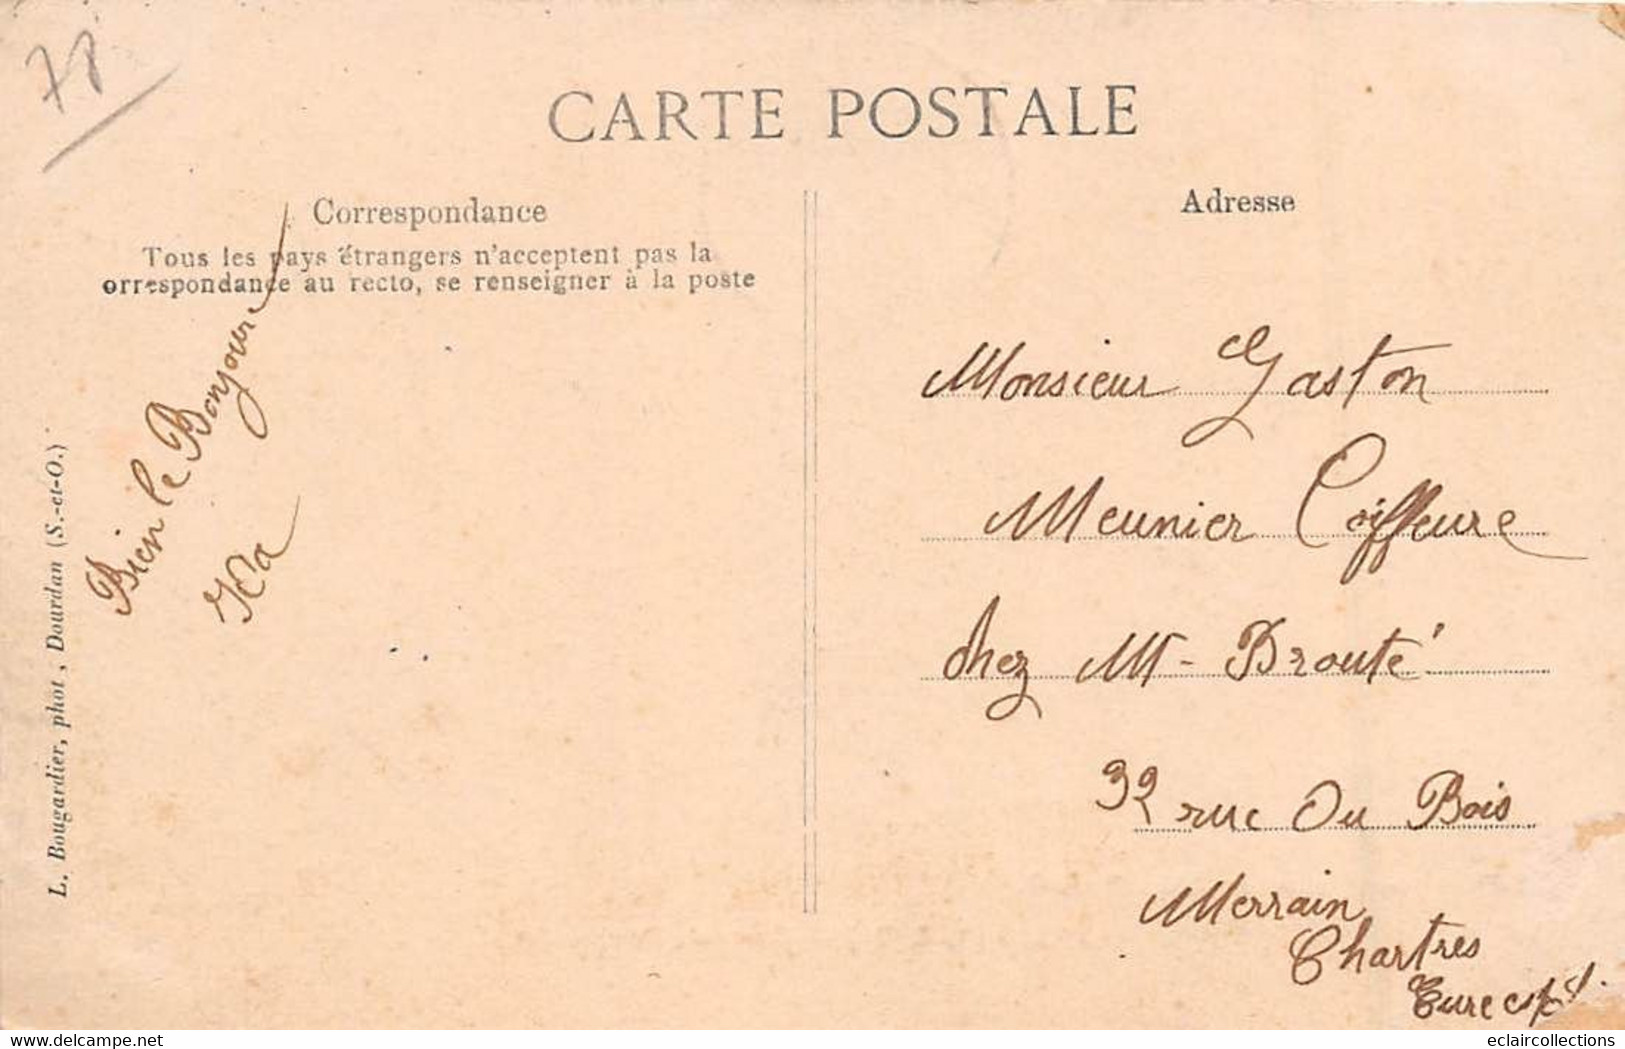 78
CARTE POSTALE
Correspondance
Tous les pays étrangers n'acceptent pas la
orrespondance au recto, se renseigner à la poste
Bien le Bonjour
L. Bougardier, phot., Dourdan (S.-et-O.)
Adresse
Monsieur Gaston
Meunier Coiffeure
chez Mr Brouté
32 rue Du Bois
Merrain
Chartres
Eure et
delcampe.net
eclaircollections